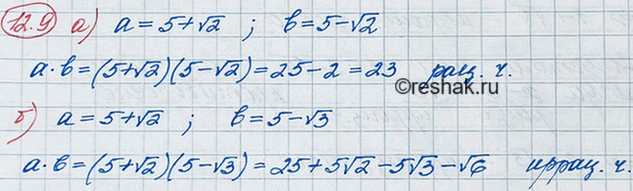 12.9 а) a = 5+√2 ; b = 5−√2
a·b = (5+√2)(5−√2) = 25−2 = 23 рац. ч.
©reshak.ru
б) a = 5+√2 ; b = 5−√3
a·b = (5+√2)(5−√3) = 25+5√2−5√3−√6 иррац. ч.